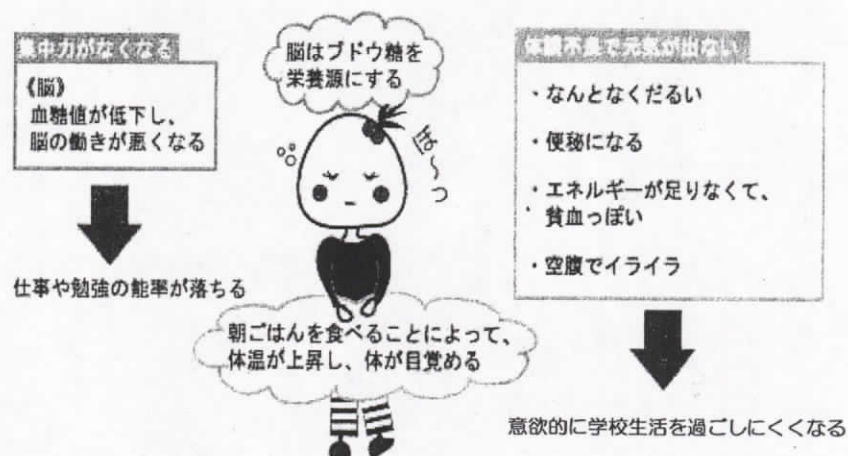 集中力がなくなる
《脳》
血糖値が低下し、
脳の働きが悪くなる
仕事や勉強の能率が落ちる
脳はブドウ糖を
栄養源にする
は〜っ
朝ごはんを食べることによって、
体温が上昇し、体が目覚める
体調不良で元気が出ない
・なんとなくだるい
・便秘になる
・エネルギーが足りなくて、
貧血っぽい
・空腹でイライラ
意欲的に学校生活を過ごしにくくなる